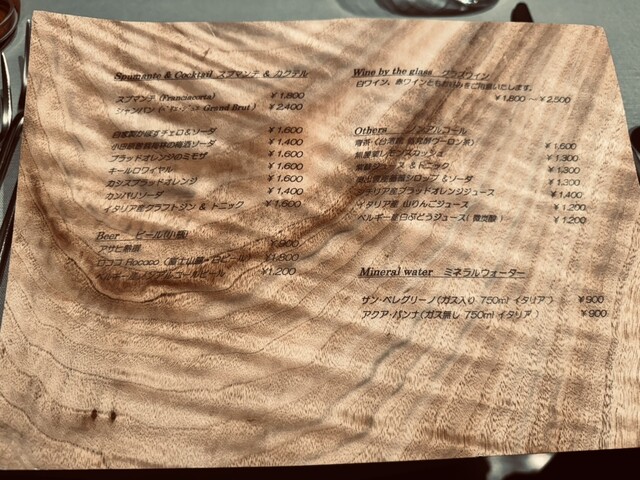 Spumante & Cocktail スプマンテ & カクテル
スプマンテ (Franciacorta) ¥1,800
シャンパン Grand Brut ) ¥2,400
自家製かぼすチェロ&ソーダ ¥1,600
小田原 梅酒ソーダ ¥1,400
ブラッドオレンジのミモザ ¥1,600
キールロワイヤル ¥1,600
カシスブラッドオレンジ ¥1,400
カンパリソーダ ¥1,400
イタリア産クラフトジン & トニック ¥1,600
Beer ビール
アサヒ ¥900
ロココ Rococo (富士山 白ビール) ¥1,800
ノンアルコールビール ¥1,200
Wine by the glass グラスワイン
白ワイン、赤ワインともお好みをご用意いたします。
¥1,800 ―¥2,500
Others ノンアルコール
青茶 (台湾 ウーロン茶) ¥1,600
¥1,300
トニック ¥1,300
シロップ &ソーダ ¥1,300
シチリア産ブラッドオレンジジュース ¥1,400
イタリア産 山りんごジュース ¥1,200
ベルギー産白ぶどうジュース( 微炭酸 ) ¥1,200
Mineral water ミネラルウォーター
サン・ペレグリーノ(ガス入り 750ml イタリア ) ¥900
アクア・パンナ(ガス無し 750ml イタリア ) ¥900